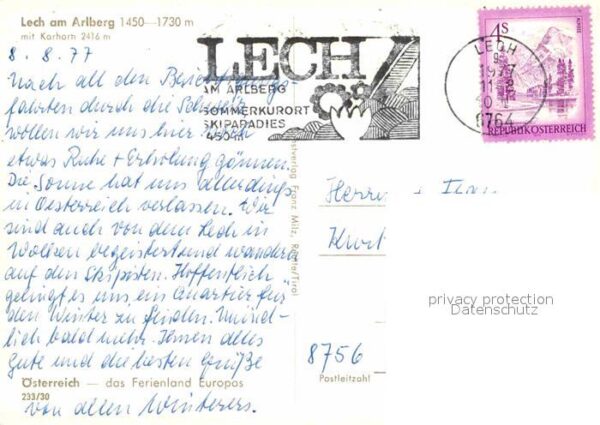 Lech am Arlberg 1450—1730 m
mit Karhorn 2416 m
8.8.77
Nach all den
fahrten durch die Schweiz
wollen wir uns hier
etwas Ruhe + Erholung gönnen.
Die Sonne hat uns allerdings
in Oesterreich verlassen. Wir
sind auch von dem Lech in
Wolken begeistert und wandern
auf den Skipisten. Hoffentlich
gelingt es uns ein Quartier für
den Winter zu finden. Münd-
lich bald mehr. Ihnen alles
gute und die besten Grüße
Österreich — das Ferienland Europas
233/30
von allen Winterers.
LECH
AM ARLBERG
SOMMERKURORT
SKIPARADIES
1450 m
LECH
1977
11
6764
4S
REPUBLIK ÖSTERREICH
Franz Milz, Reutte/Tirol
Herrn +
Kurt
8756
Postleitzahl
privacy protection
Datenschutz